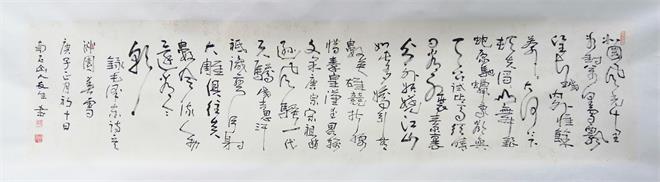 北國風光千里
冰封萬里雪飄
望長城內外惟餘
莽莽大河上下
頓失滔滔山舞
銀蛇原馳蠟象欲與
天公試比高須晴
日看紅裝素裹
分外妖嬈江山
如此多嬌引無
數英雄競折腰
惜秦皇漢武略輸
文采唐宗宋祖稍
遜風騷一代
天驕成吉思汗
祇識彎弓射
大雕俱往矣
數風流人物
還看今
朝
錄毛澤東詩詞
沁園春雪
庚子正月初十日